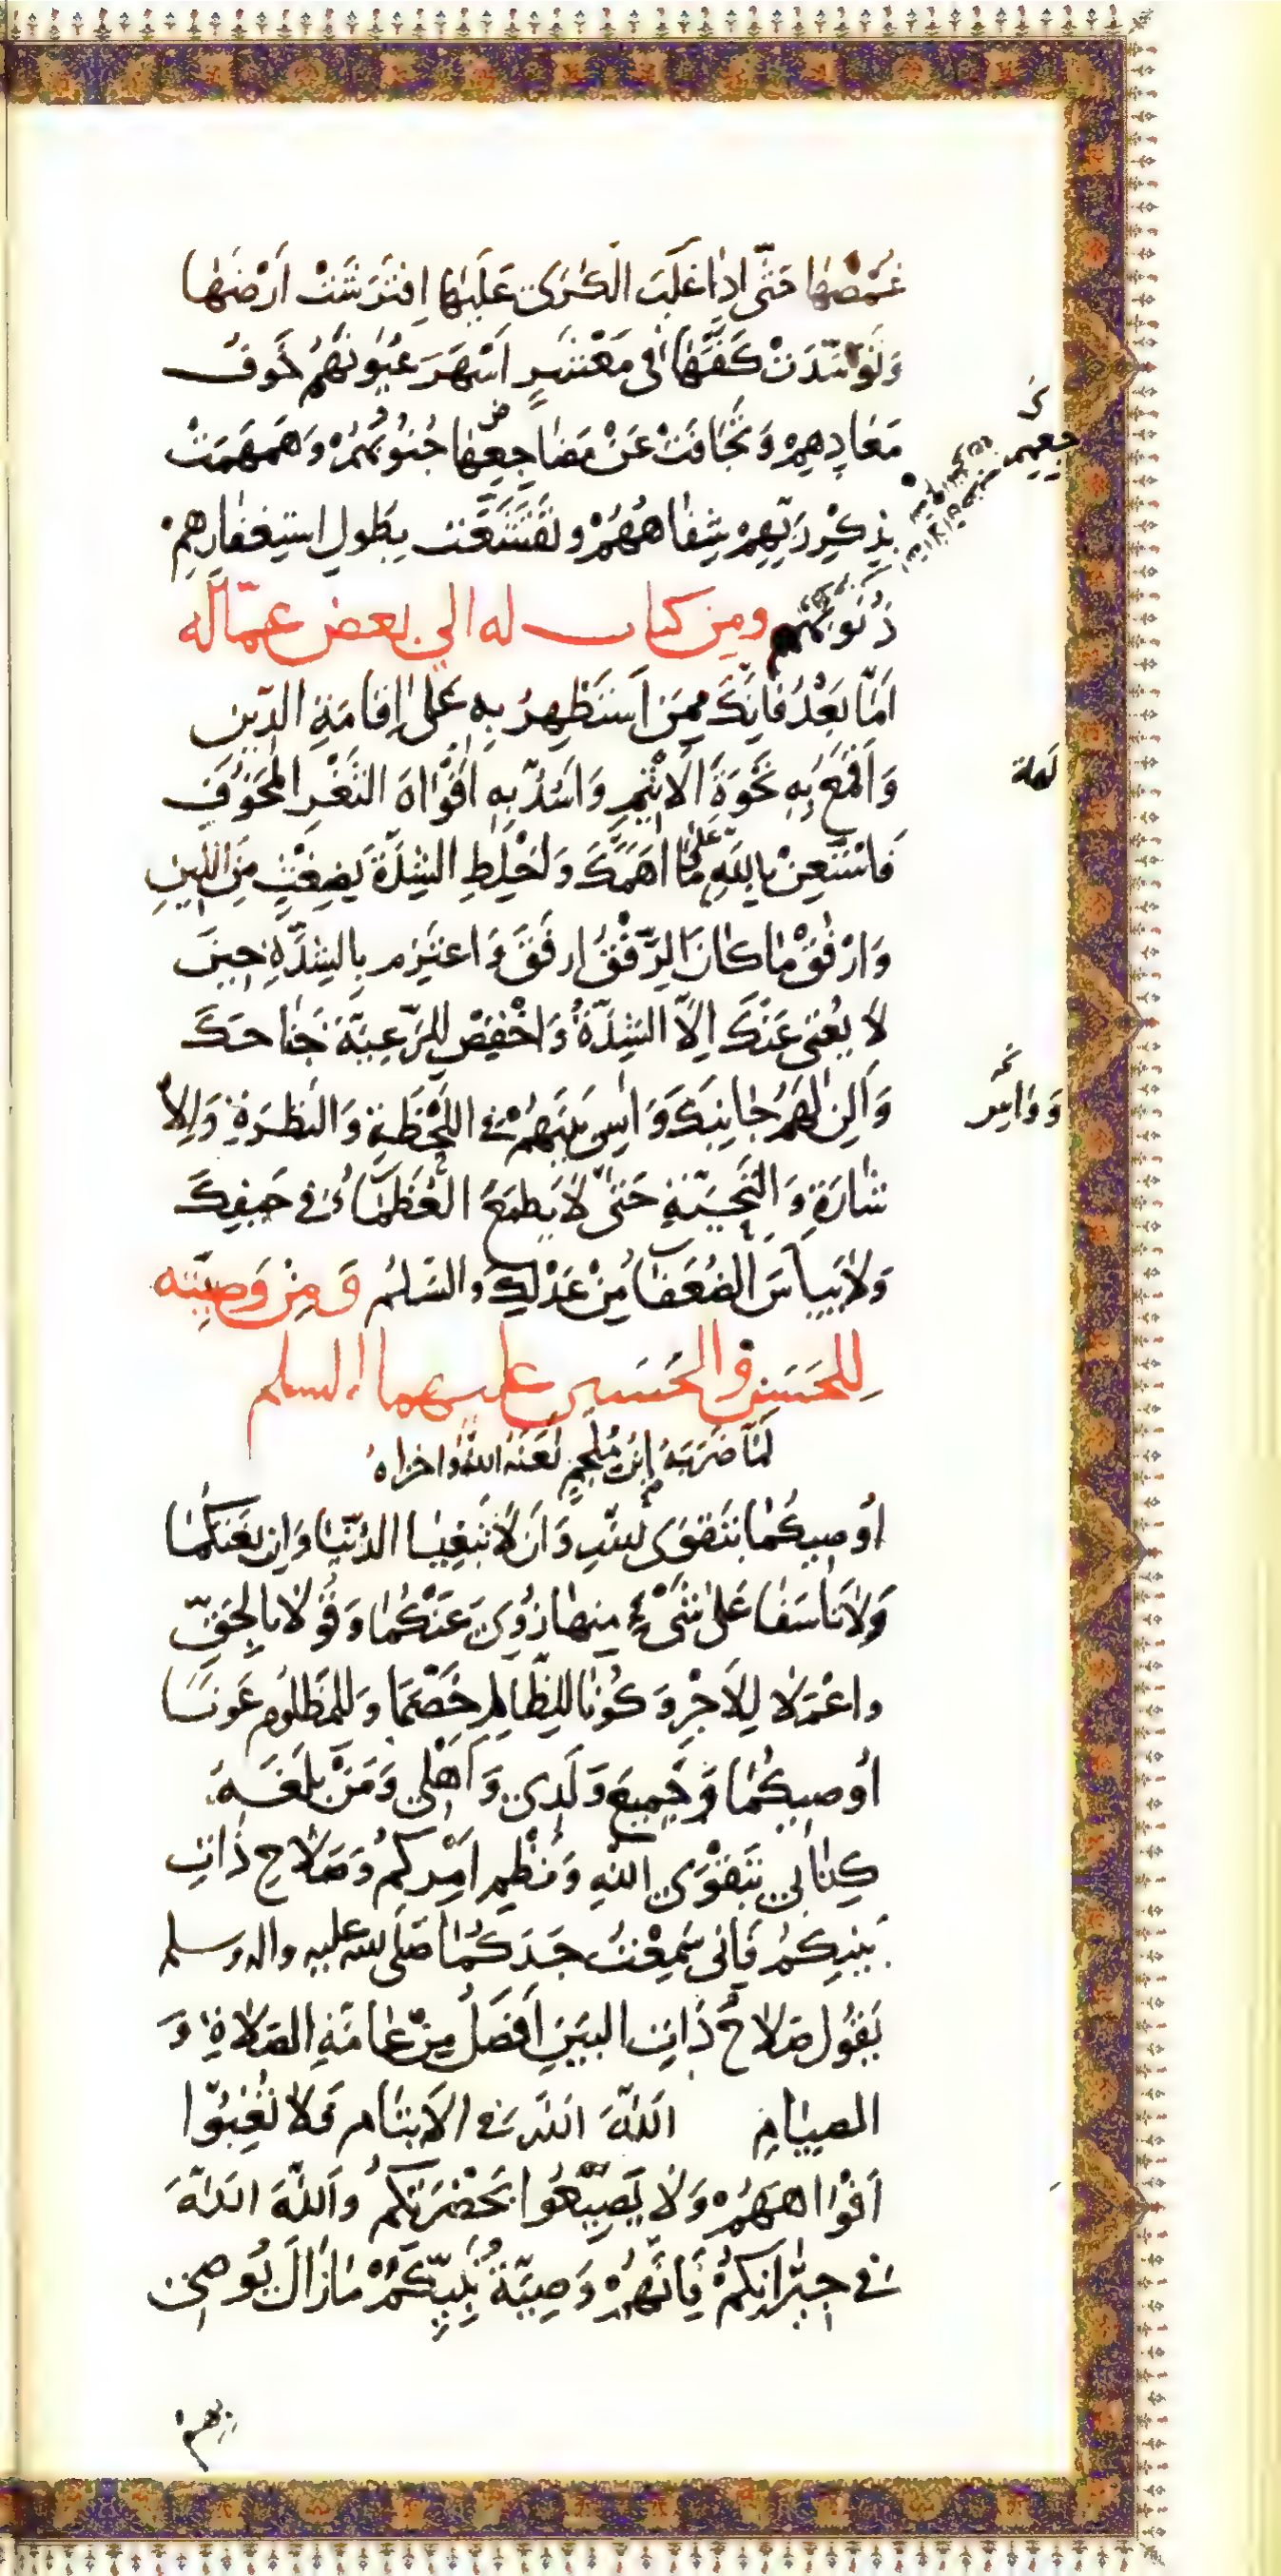 غُمْضَهَا حَتَّى اِذَا غَلَبَ الْكَرَى عَلَيْهَا اِفْتَرَشَتْ اَرْضَهَا
وَتَوَسَّدَتْ كَفَّهَا فِى مَعْشَرٍ اَسْهَرَ عُيُونَهُمْ خَوْفُ
مَعَادِهِمْ وَتَجَافَتْ عَنْ مَضَاجِعِهَا جُنُوبُهُمْ وَهَمْهَمَتْ
بِذِكْرِ رَبِّهِمْ شِفَاهُهُمْ وَتَقَشَّعَتْ بِطُولِ اسْتِغْفَارِهِمْ
ذُنُوبُهُمْ ومِن كتاب له الى بعض عمّاله
اَمَّا بَعْدُ فَاِنَّكَ مِمَّنْ اَسْتَظْهِرُ بِهِ عَلَى اِقَامَةِ الدِّينِ
وَاَقْمَعُ بِهِ نَخْوَةَ الْاَثِيمِ وَاَسُدُّ بِهِ اَفْوَاهَ الثَّغْرِ الْمَخُوفِ
لهاة
فَاسْتَعِنْ بِاللهِ عَلَى مَا اَهَمَّكَ وَاخْلِطِ الشِّدَّةَ بِضِغْثٍ مِنَ اللِّينِ
وَارْفُقْ مَا كَانَ الرِّفْقُ ارفَقَ وَاعتَزِم بِالشِّدَّةِ حِينَ
لَا يُغْنِى عَنْكَ اِلَّا الشِّدَّةُ وَاخْفِضْ لِلرَّعِيَّةِ جَنَاحَكَ
وَاَلِنْ لَهُمْ جَانِبَكَ وَاٰسِ بَيْنَهُمْ فِى اللَّحْظَةِ وَالنَّظْرَةِ وَالْاِ
شَارَةِ وَالتَّحِيَّةِ حَتَّى لَا يَطْمَعَ الْعُظَمَاءُ فِى حَيْفِكَ
وَلَا يَيْاَسَ الضُّعَفَاءُ مِنْ عَدْلِكَ والسَّلمُ وَمِنْ وَصِيَّته
لِلحَسَنِ والحُسَين عليهما السلم
لَمَّا ضَرَبَهُ اِبْنُ مُلْجَمٍ لَعَنَهُ اللهُ وَاخزاهُ
اُوصِيكُمَا بِتَقوَى للهِ وَاَن لَا تَبْغِيَا الدُّنْيَا وَاِن بَغَتْكُمَا
وَلَا تَاْسَفَا عَلَى شَىْءٍ مِنهَا زُوِىَ عَنْكُمَا وَقُولَا بِالحَقِّ
وَاعْمَلَا لِلاَجْرِ وَكُونَا لِلظَّالِمِ خَصْمًا وَلِلْمَظْلُومِ عَونًا
اُوصِيكُمَا وَجَمِيعَ وَلَدِى وَاَهْلِى وَمَنْ بَلَغَهُ
كِتَابِى بِتَقْوَى اللهِ وَنَظْمِ اَمْرِكُمْ وَصَلَاحِ ذَاتِ
بَيْنِكُمْ فَاِنِّى سَمِعْتُ جَدَّكُمَا صَلَّى لله عليه واله وسلم
يَقُولُ صَلَاحُ ذَاتِ البَيْنِ اَفضَلُ مِنْ عَامَّةِ الصَّلَاةِ وَ
الصِيَامِ اَللهَ اَللهَ فِى الْاَيتَام فَلَا تُغِبُّوا
اَفْوَاهَهُمْ وَلَا يَضِيعُوا بِحَضْرَتِكُمْ وَاَللهَ اَللهَ
فِى جِيرَانِكُمْ فَاِنَّهُمْ وَصِيَّةُ نَبِيِّكُمْ مَازَالَ يُوصِى
بِهِمْ